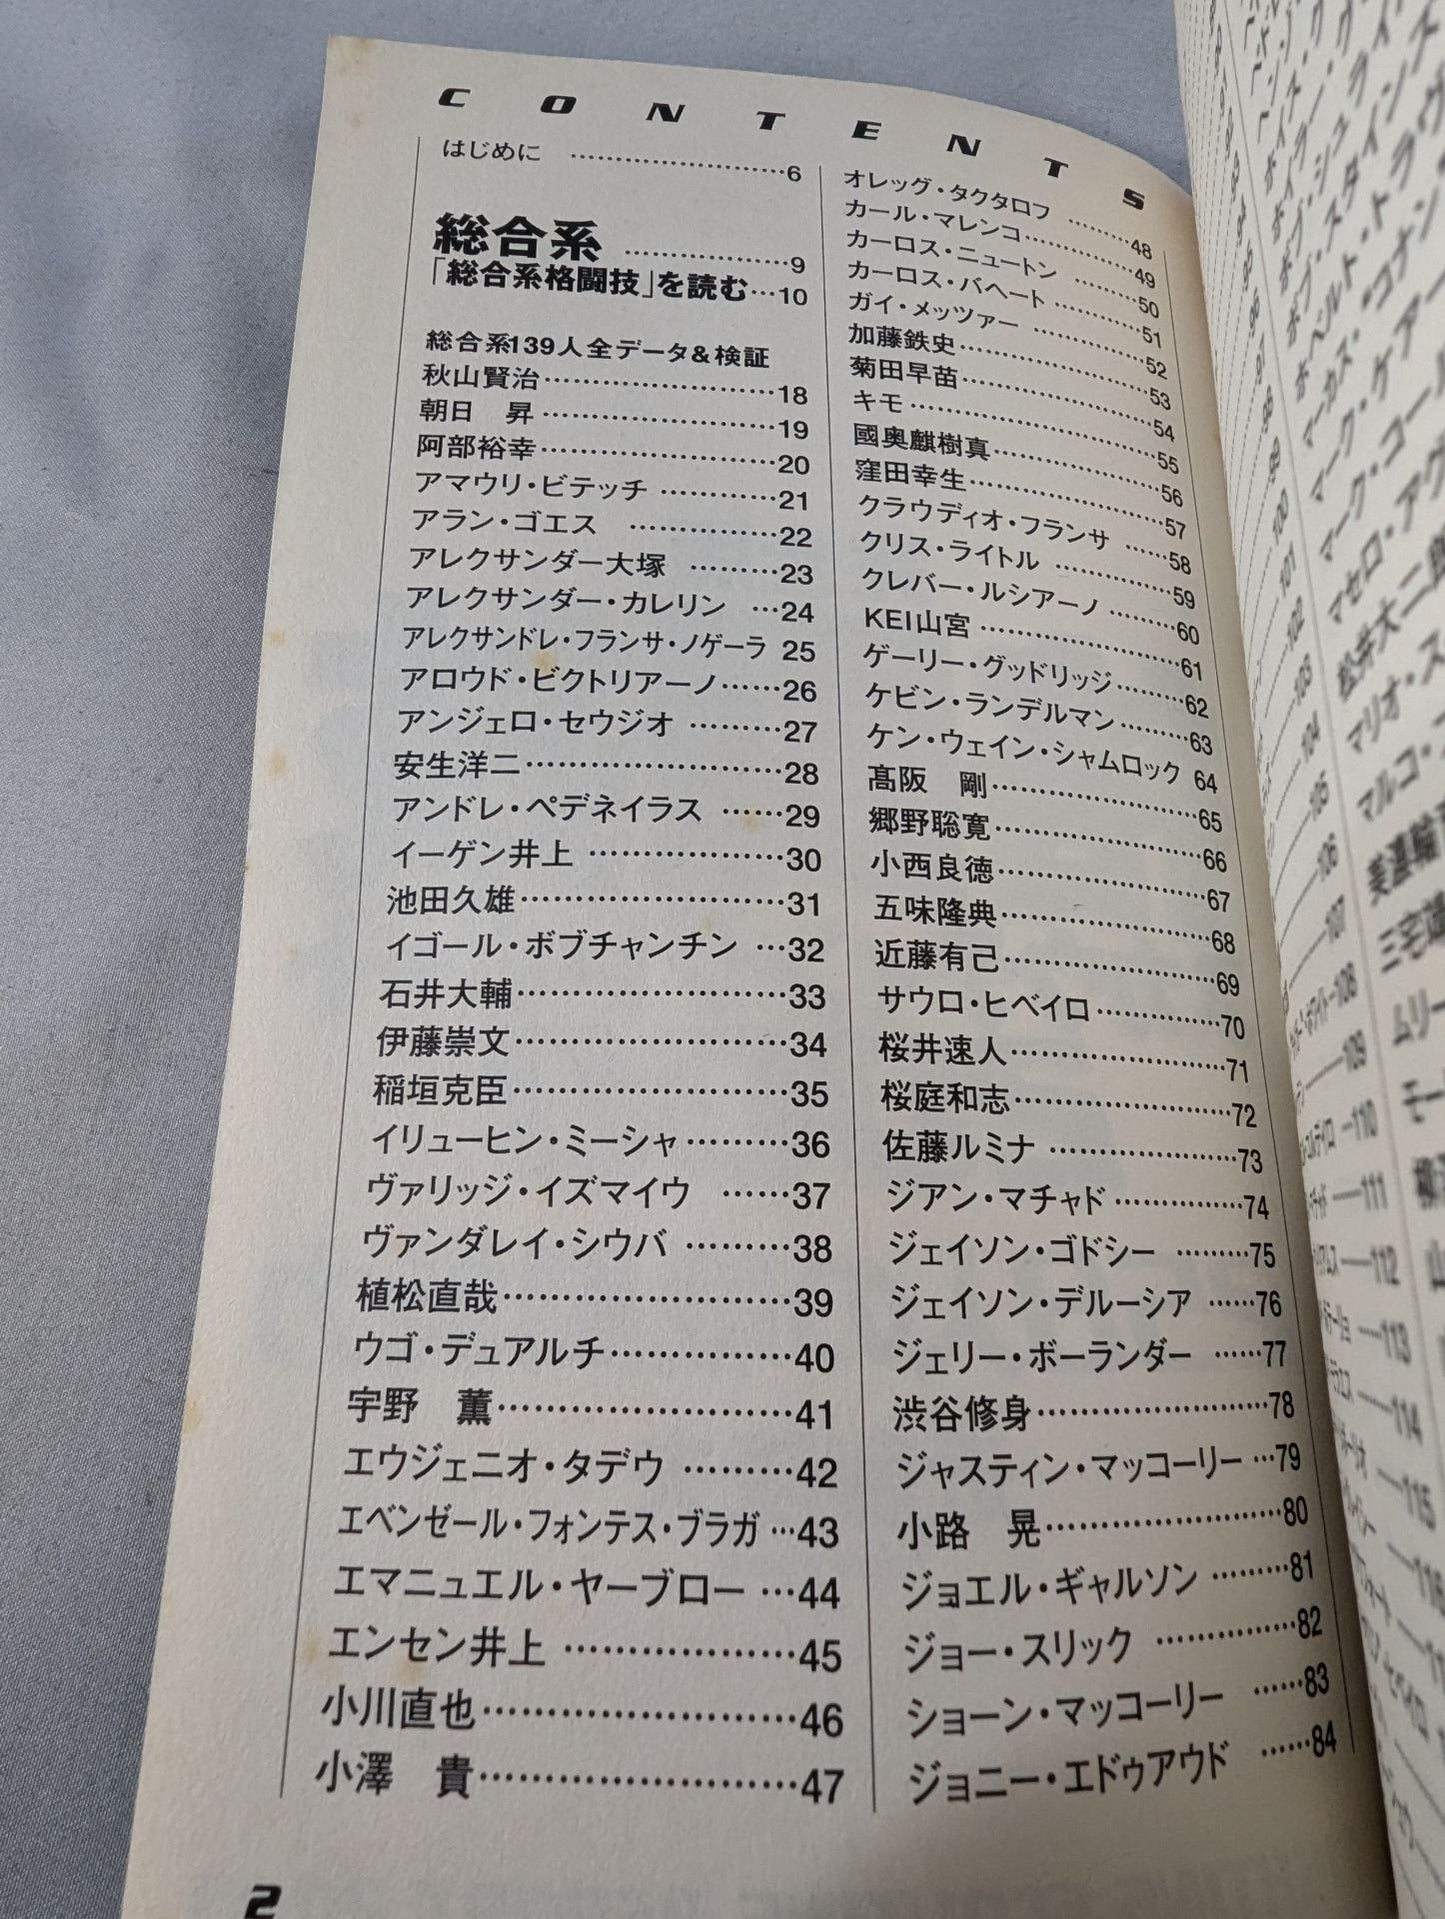 CONTENTS
はじめに …………………6
総合系 ………………9
「総合系格闘技」を読む…10
総合系139人全データ&検証
秋山賢治…………………18
朝日　昇…………………19
阿部裕幸…………………20
アマウリ・ビテッチ…………21
アラン・ゴエス ……………22
アレクサンダー大塚 ………23
アレクサンダー・カレリン …24
アレクサンドレ・フランサ・ノゲーラ 25
アロウド・ビクトリアーノ……26
アンジェロ・セウジオ ………27
安生洋二……………………28
アンドレ・ペデネイラス ……29
イーゲン井上 ………………30
池田久雄……………………31
イゴール・ボブチャンチン …32
石井大輔……………………33
伊藤崇文……………………34
稲垣克臣……………………35
イリューヒン・ミーシャ………36
ヴァリッジ・イズマイウ ……37
ヴァンダレイ・シウバ ………38
植松直哉……………………39
ウゴ・デュアルチ……………40
宇野　薫……………………41
エウジェニオ・タデウ ………42
エベンゼール・フォンテス・ブラガ …43
エマニュエル・ヤーブロー …44
エンセン井上 ………………45
小川直也……………………46
小澤　貴……………………47
オレッグ・タクタロフ ………48
カール・マレンコ……………49
カーロス・ニュートン ………50
カーロス・バヘート …………51
ガイ・メッツァー ……………52
加藤鉄史……………………53
菊田早苗……………………54
キモ…………………………55
國奥麒樹真…………………56
窪田幸生……………………57
クラウディオ・フランサ ……58
クリス・ライトル ……………59
クレバー・ルシアーノ ………60
KEI山宮 ……………………61
ゲーリー・グッドリッジ………62
ケビン・ランデルマン ………63
ケン・ウェイン・シャムロック 64
髙阪　剛……………………65
郷野聡寛……………………66
小西良徳……………………67
五味隆典……………………68
近藤有己……………………69
サウロ・ヒベイロ……………70
桜井速人……………………71
桜庭和志……………………72
佐藤ルミナ …………………73
ジアン・マチャド……………74
ジェイソン・ゴドシー ………75
ジェイソン・デルーシア ……76
ジェリー・ボーランダー ……77
渋谷修身……………………78
ジャスティン・マッコーリー …79
小路　晃……………………80
ジョエル・ギャルソン ………81
ジョー・スリック ……………82
ショーン・マッコーリー ……83
ジョニー・エドゥアウド ……84
2
100
101
102
103
104
105
106
107
108
109
110
111
112
113
114
115
116